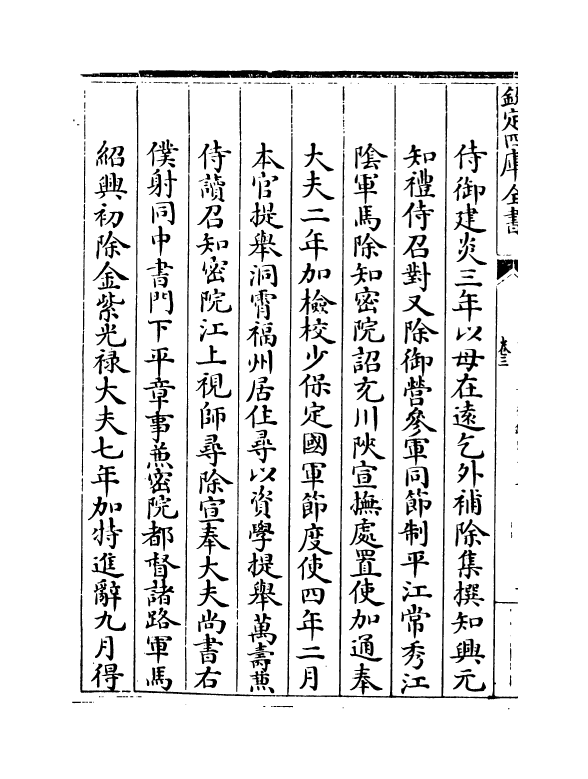 欽定四庫全書
卷三
侍御建炎三年以母在遠乞外補除集撰知興元
知禮侍召對又除御營參軍同節制平江常秀江
隂軍馬除知密院詔充川陜宣撫處置使加通奉
大夫二年加檢校少保定國軍節度使四年二月
本官提舉洞霄福州居住尋以資學提舉萬壽兼
侍讀召知密院江上視師尋除宣奉大夫尚書右
僕射同中書門下平章事兼密院都督諸路軍馬
紹興初除金紫光禄大夫七年加特進辭九月得